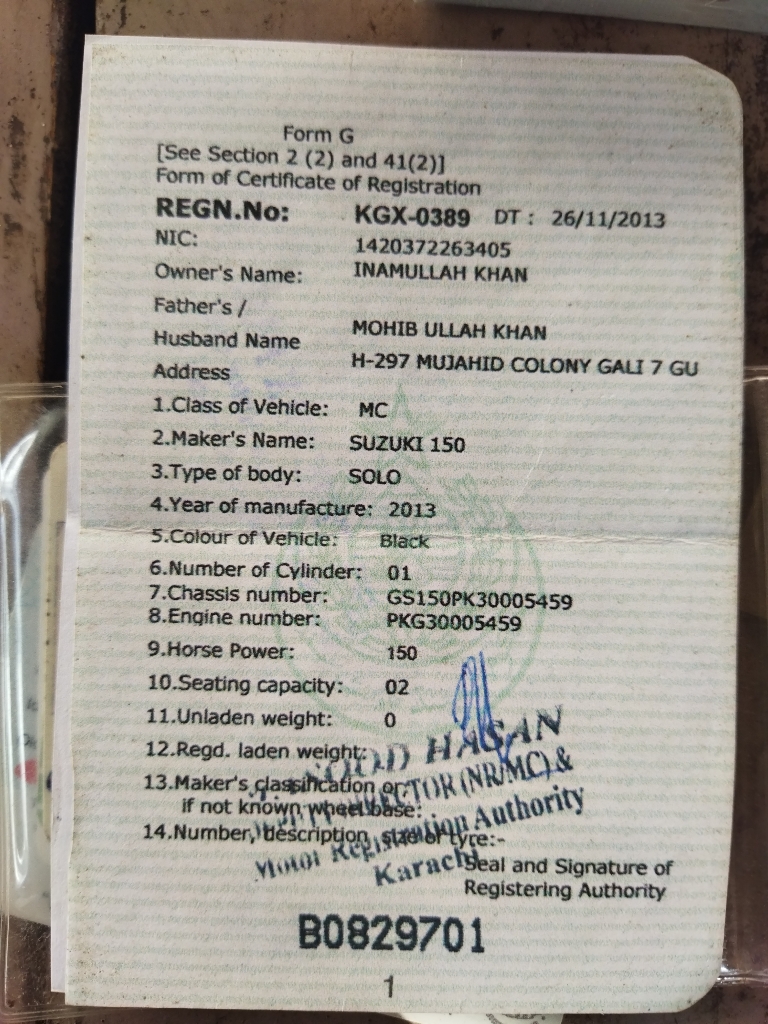 Form G
[See Section 2 (2) and 41(2)]
Form of Certificate of Registration
REGN.No: KGX-0389 DT : 26/11/2013
NIC: 1420372263405
Owner's Name: INAMULLAH KHAN
Father's /
Husband Name MOHIB ULLAH KHAN
Address H-297 MUJAHID COLONY GALI 7 GU
1.Class of Vehicle: MC
2.Maker's Name: SUZUKI 150
3.Type of body: SOLO
4.Year of manufacture: 2013
5.Colour of Vehicle: Black
6.Number of Cylinder: 01
7.Chassis number: GS150PK30005459
8.Engine number: PKG30005459
9.Horse Power: 150
10.Seating capacity: 02
11.Unladen weight: 0
12.Regd. laden weight:
13.Maker's classification or,
if not known wheel base:
14.Number, description, size of tyre:-
HASAN
(NR/MC) &
Motor Registration Authority
Karachi
Seal and Signature of
Registering Authority
B0829701
1